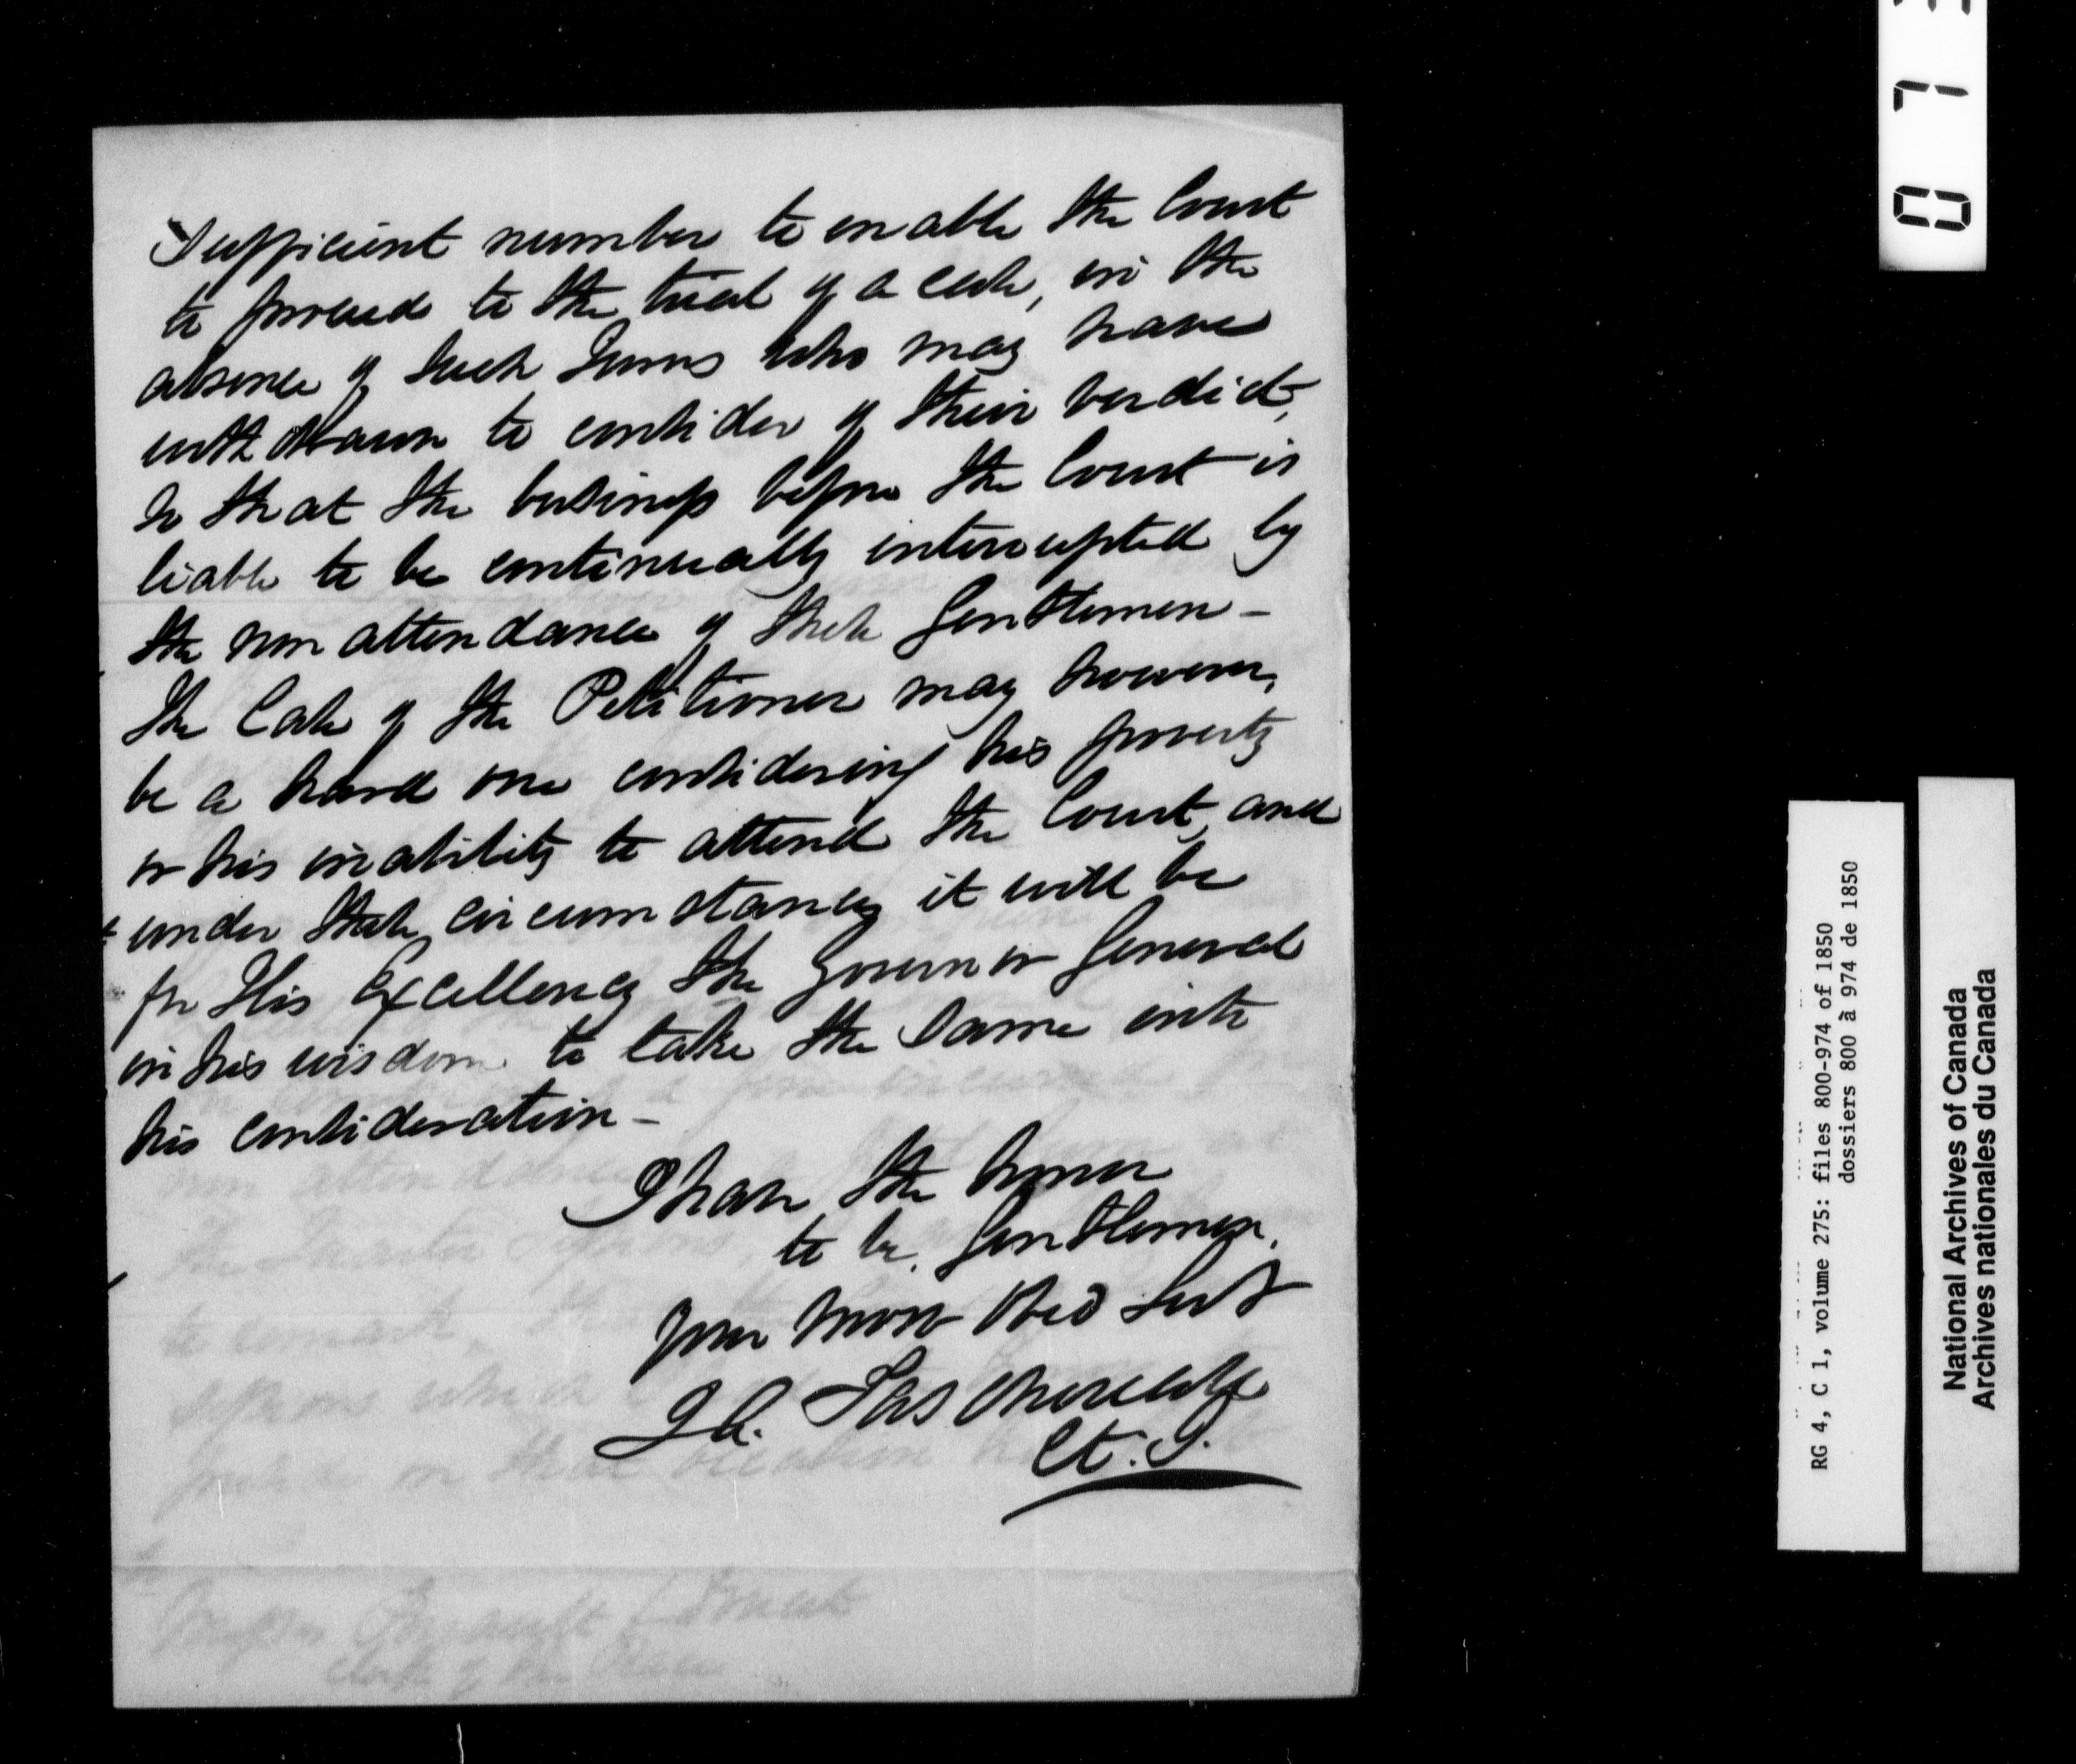 Sufficient number to enable the Court
to proceed to the trial of a case, in the
absence of such Jurors who may have
withdrawn to consider of their verdict,
so that the business before the Court is
liable to be continually interrupted by
the non attendance of these Gentlemen -
The Case of the Petitioner may however,
be a hard one considering his poverty
or his inability to attend the Court, and
under these circumstances it will be
for His Excellency the Governor General
in his wisdom to take the same into
his consideration -
I have the honor
to be, Gentlemen,
Your most Obed Servt
J A. Taschereau
Ct. J.
073
RG 4, C 1, volume 275: files 800-974 of 1850
dossiers 800 à 974 de 1850
National Archives of Canada
Archives nationales du Canada